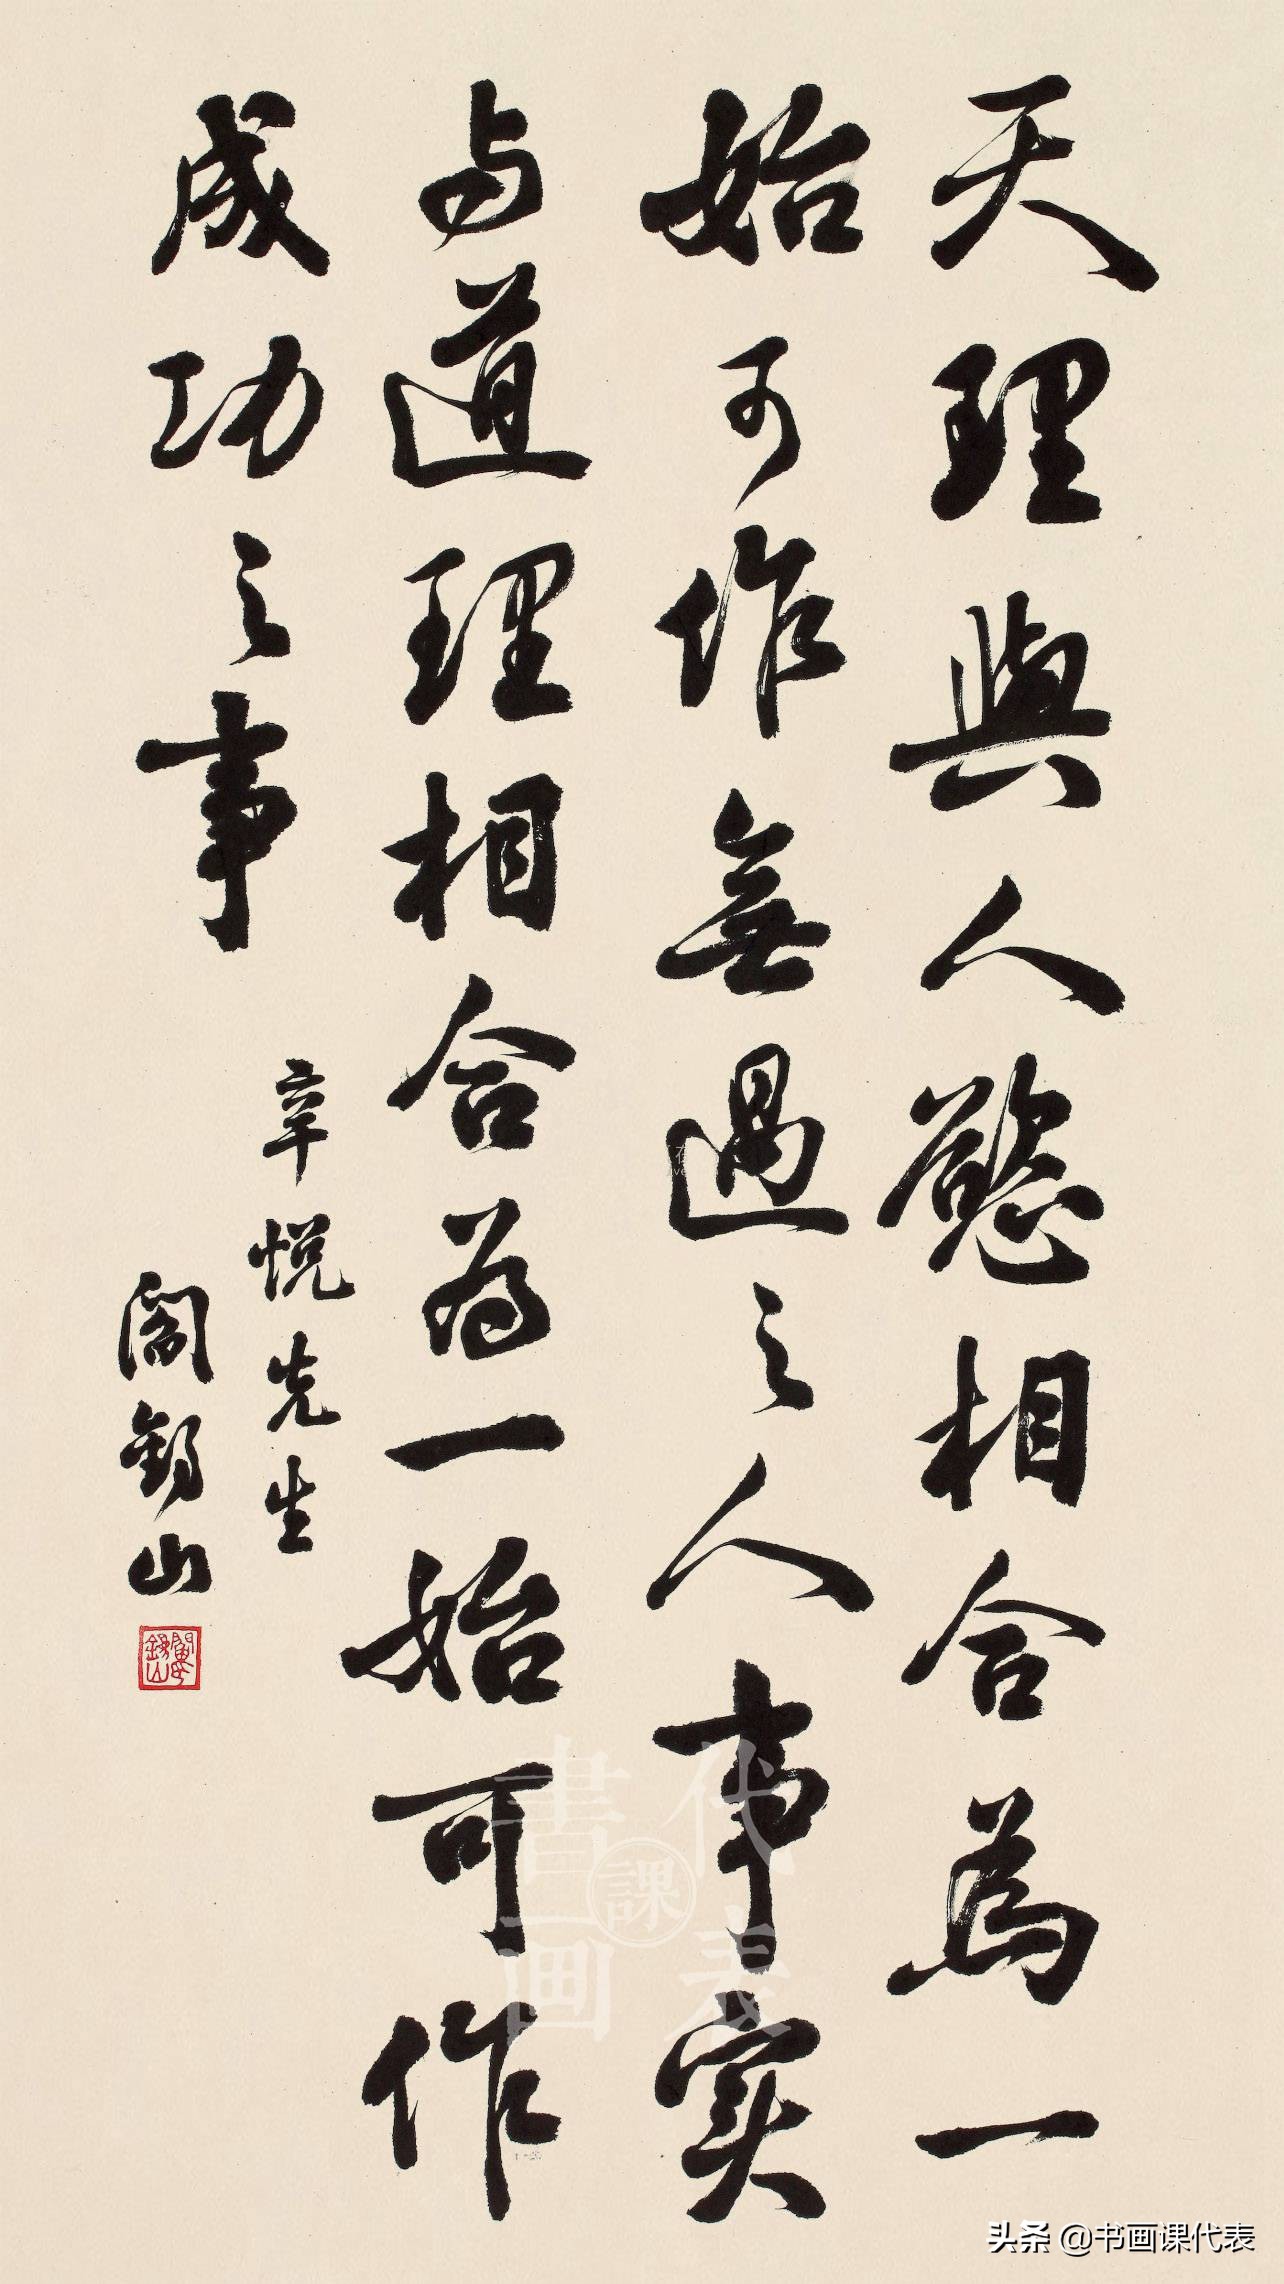 天理與人慾相合為一
始可作無過之人事实
与道理相合为一始可作
成功之事
辛悦先生
閻錫山
書画
課
代表
头条 @书画课代表